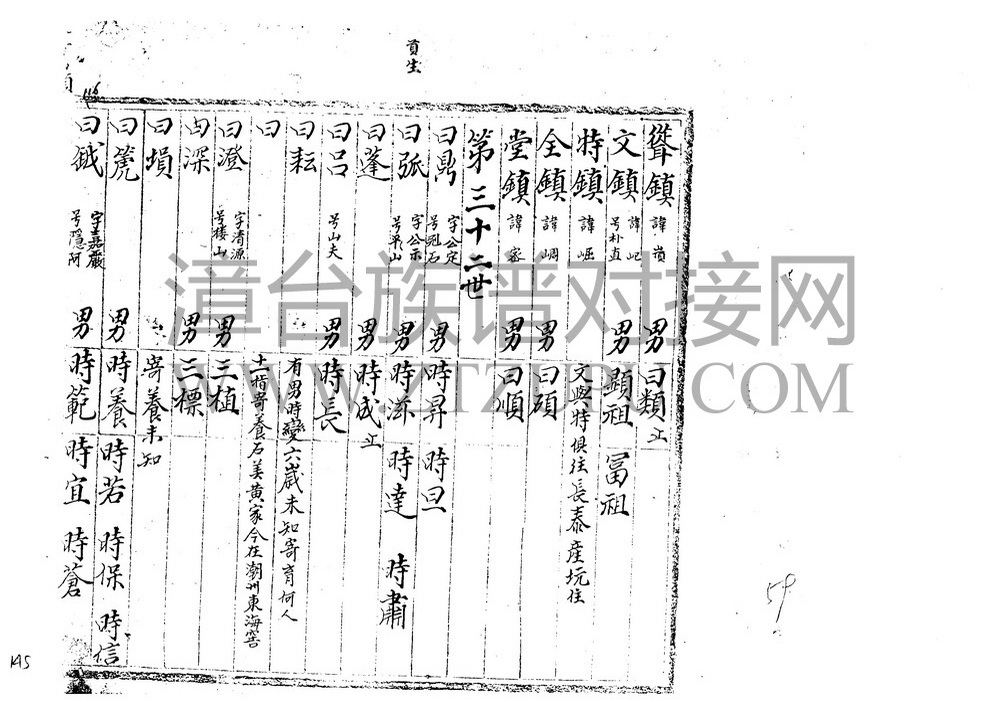 貢生
聳鎮 諱嶺 男 曰類 止
文鎮 諱屺 号朴直 男 顯祖 冨祖
特鎮 諱崛 文與特俱往長泰産坑住
全鎮 諱峒 男 曰碩
堂鎮 諱 男 曰順
第三十二世
曰鼎 字公定 号 石 男 時昇 時旦
曰弧 字公示 号 山 男 時 時達 時肅
曰蓬 男 時成 止
曰吕 号山夫 男 時長
曰耘 有男時變六歲未知寄育何人
曰 十一指寄養石美黄家今在潮州東海窖
曰澄 字清源 号棲山 男 三植
曰深 男 三標
曰塤 寄養未知
曰篪 男 時養 時若 時保 時信
曰鉞 字嘉嚴 号隱阿 男 時範 時宜 時蒼
漳台族谱对接网
WWW.ZTZUPU.COM
59
145